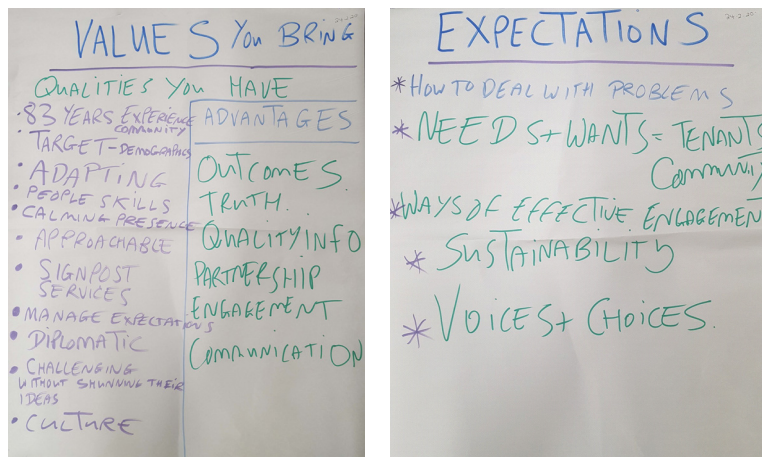 VALUES YOU BRING
QUALITIES YOU HAVE
• 83 YEARS EXPERIENCE
COMMUNITY
• TARGET - DEMOGRAPHICS
• ADAPTING
• PEOPLE SKILLS
• CALMING PRESENCE
• APPROACHABLE
• SIGNPOST
SERVICES
• MANAGE EXPECTATIONS
• DIPLOMATIC
• CHALLENGING
WITHOUT SHUNNING THEIR
IDEAS
• CULTURE
ADVANTAGES
OUTCOMES.
TRUTH.
QUALITY INFO
PARTNERSHIP
ENGAGEMENT
COMMUNICATION
EXPECTATIONS
24.2.20
* HOW TO DEAL WITH PROBLEMS
* NEEDS + WANTS = TENANTS
Communi
* WAYS OF EFFECTIVE ENGAGEMEN
* SUSTAINABILITY
* VOICES + CHOICES.